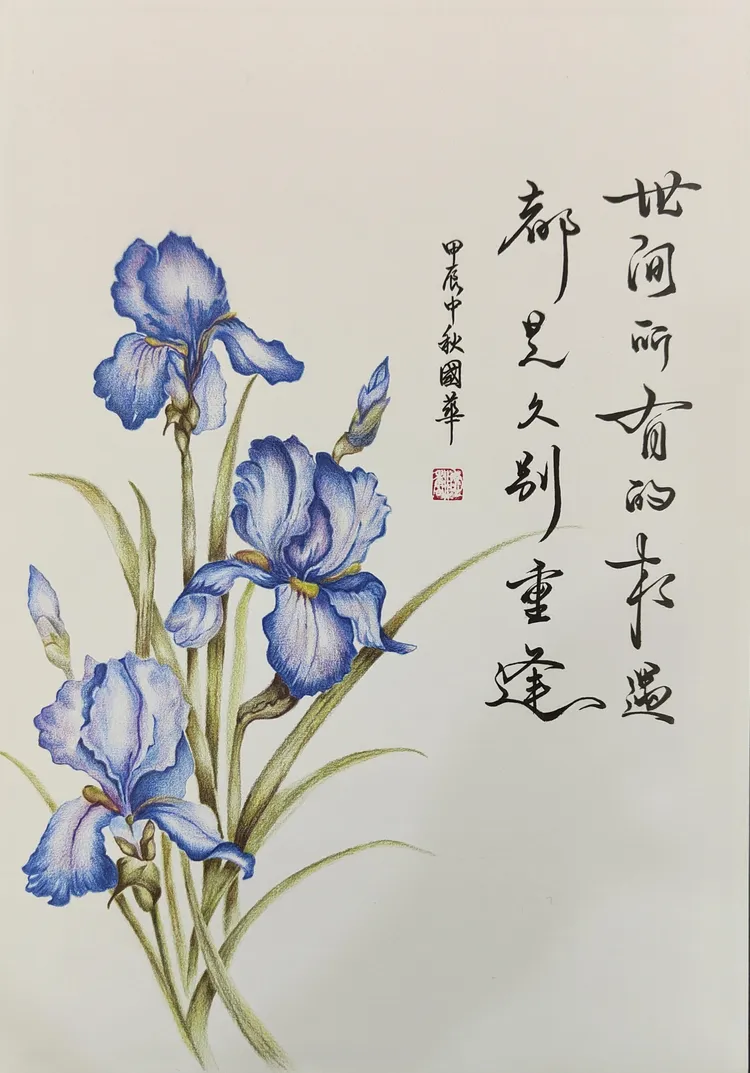 世间所有的相遇
都是久别重逢
甲辰中秋國華